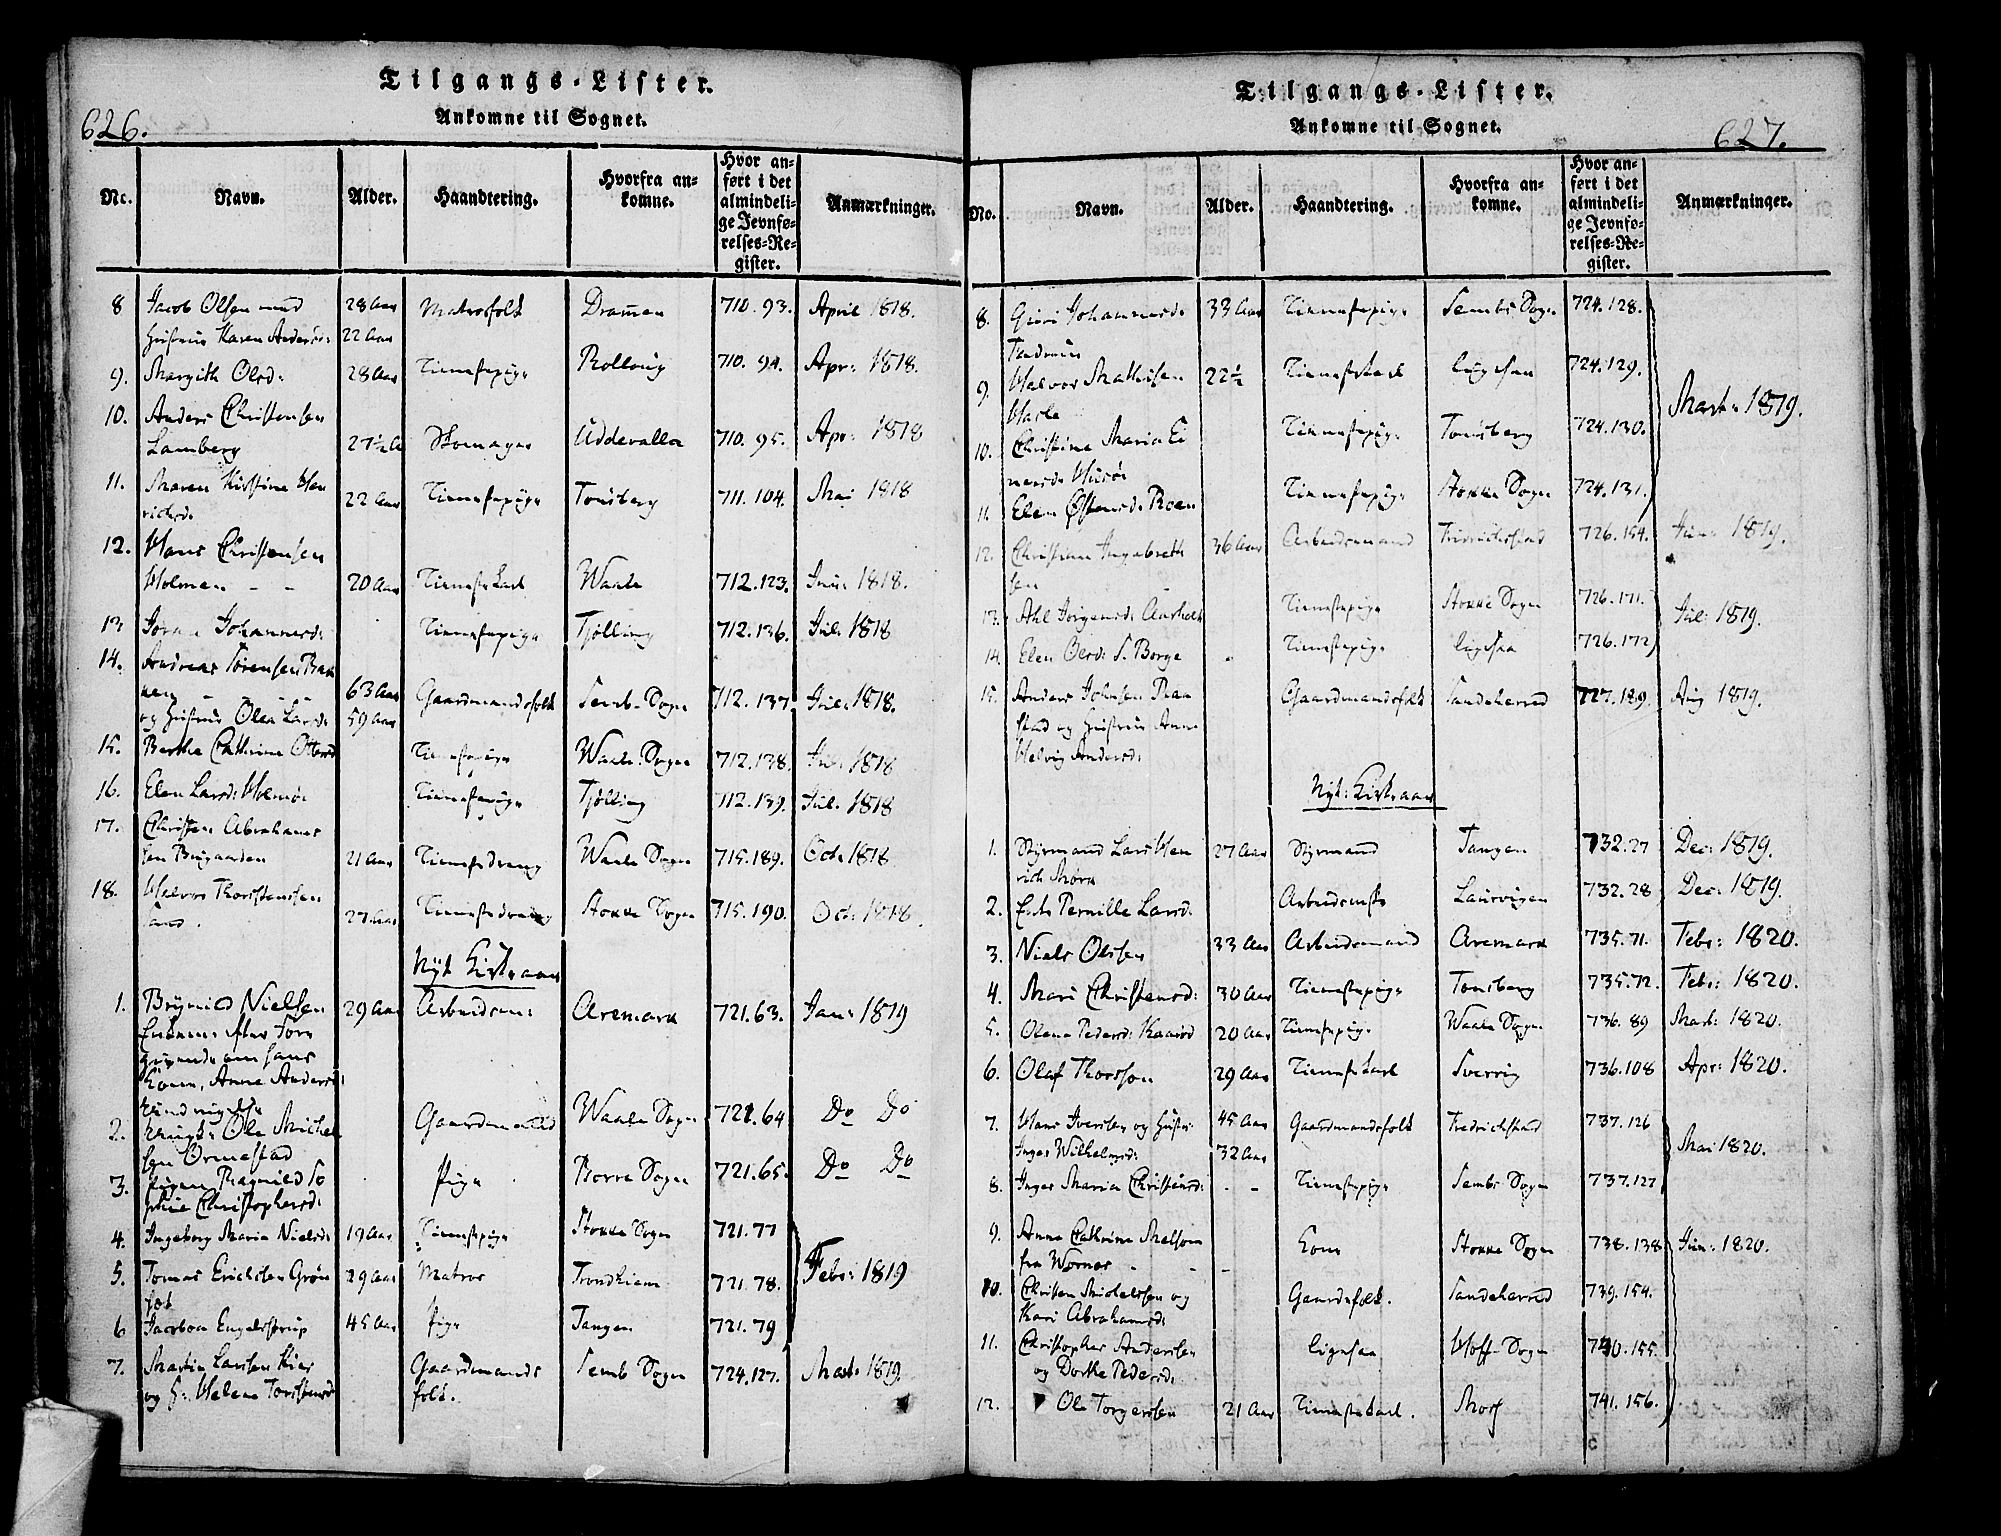 626.
Tilgangs-Lister.
Ankomne til Sognet.
No. Navn. Alder. Haandtering. Hvorfra ankomne. Hvor anført i det almindelige Jevnførelses-Register. Anmærkninger.
8 Jacob Olsen med 28 Aar Matrosfolk Dramen 710. 93. April 1818.
Hustrue Karen Andersd: 22 Aar
9. Margith Olsd: 28 Aar Tienestepige Rolloug 710. 94. Apr: 1818.
10. Anders Christensen
Lamberg 27½ A Skomager Uddevalla 710. 95. Apr: 1818
11. Maren Kirstine Hen
richsd: 22 Aar Tienestepige Tønsberg 711. 104. Mai 1818
12. Hans Christensen
Holmen - - 20 Aar Tieneste Karl Waale 712. 123. Juni 1818.
13 Johannesd: Tienestepige Tjølling 712. 136. Jul: 1818
14. Andreas Sørensen Bak
ken 63 Aar Gaardmandsfolk Semb-Sogn 712. 137. Jul: 1818.
og Hustrue Olea Larsd: 59 Aar
15. Berthe Cathrine Ottersd Tienestepige Waale Sogn 712. 138. Jul: 1818
16. Elen Larsd: Holmøe Tienestepige Tjølling 712. 139. Jul: 1818
17. Christen Abrahams
sen Bugaarden 21 Aar Tienestedreng Waale Sogn 715. 189. Oct: 1818
18. Halvor Thorstenssen
27. Aar Tienestedreng Stokke Sogn 715. 190. Oct: 1818.
Nyt Kirkeaar
1. Brynild Nielsen 29 Aar Arbeidsm: Aremark 721. 63. Jan: 1819
Enkem: efter fore
givende om hans
Kone, Anne Andersd:
2. Ole Michel Gaardmand Waale Sogn 721. 64 Do Do
sen Ormestad
3. Pigen Ragnild So Pige Borre Sogn 721. 65. Do Do
phie Christophersd:
4. Ingeborg Maria Nielsd: 19 Aar Tienestepige Stokke Sogn 721. 77
5. Tomas Erichsen Grøn 29 Aar Matros Trondhiem 721. 78. Febr: 1819
6 Jacoboa Engelstrup 45 Aar Pige Tangen 721. 79
7. Martin Larsen Kiær Gaardmands Semb Sogn 724. 127. Mart: 1819.
og H: Helene Torstensd folk.
627.
Tilgangs-Lister.
Ankomne til Sognet.
No. Navn. Alder. Haandtering. Hvorfra ankomne. Hvor anført i det almindelige Jevnførelses-Register. Anmærkninger.
8. Giøri Johannesd: 33 Aar Tienestepige Sembs Sogn 724. 128.
9. Halvor Mathisen 22½ Tienestekarl ligesaa 724. 129. Mart: 1819.
10. Christine Maria Ei Tienestepige Tønsberg 724. 130.
nersd: Husøe
11. Elen Østensd: Roen Tienestepige Stokke Sogn 724. 131.
12. Christian Ingebreth 36 Aar Arbeidsmand Fridrichsstad 726. 154. Jun: 1819.
sen
13. Ahl Jørgensd: Aarholt Tienestepige Stokke Sogn 726. 171. Jul: 1819.
14. Elen Olsd: S. Borge - Tienestepige ligesaa 726. 172
15. Anders Johnsen Raa Gaardmandsfolk Sandeherred 727. 189. Aug 1819.
stad og Hustrue Anne
Helvig Andersd:
Nyt: Kirkeaar
1. Styrmand Lars Hen 27 Aar Styrmand Tangen 732. 27 Dec: 1819.
rich Mørk
2. Enke Pernille Larsd: Laurvigen 732. 28 Dec: 1819.
3. Niels Olssen 33 Aar Arbeidsmand Aremark 735. 71. Febr: 1820.
4. Mari Christensd: 30 Aar Tienestepige Tønsberg 735. 72. Febr: 1820.
5. Olene Pedersd: Kaarød 20 Aar Tienestepige Waale Sogn 736. 89 Mart: 1820.
6. Olaf Thorsson 29 Aar Tienestekarl Sverrig 736. 108 Apr: 1820.
7. Hans Iversen og Hustr: 45 Aar Gaardmandsfolk Fredrichstad 737. 126
Inger Wilhelmsd: 32 Aar Mai 1820.
8. Inger Maria Christensd: - - Tienestepige Sembs Sogn 737. 127
9. Anne Cathrine Melsom Kone Stokke Sogn 738. 138 Jun: 1820.
fra Wornes - - -
10. Christen Michelssen og Gaardefolk. Sandeherred 739. 154.
Kari Abrahamsd:
11. Christopher Anderssen ligesaa Hoff-Sogn 740. 155.
og Dorthe Pedersd:
12. Ole Torgerssen 21 Aar Tienestekarl. Moss 741. 156.